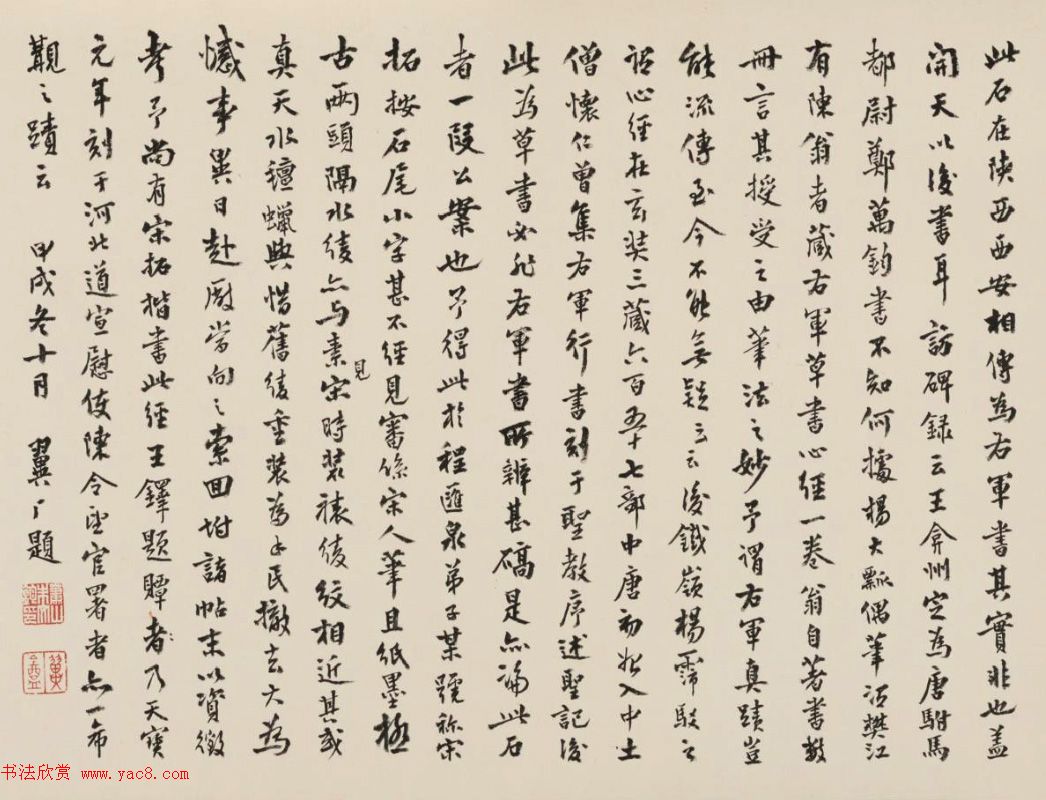 此石在陝西西安相傳為右軍書其實非也蓋
開天以後書耳訪碑録云王弇州定為唐駙馬
都尉鄭萬鈞書不知何據楊大瓢偶筆滔樊江
有陳翁者藏右軍草書心經一卷翁自著書數
冊言其授受之由筆法之妙予謂右軍真蹟豈
能流傳至今不能無疑云云後鐵嶺楊霈駁云
謂心經在玄奘三藏六百五十七部中唐初始入中土
僧懷仁曾集右軍行書刻于聖教序述聖記後
此為草書必非右軍書所辨甚碻是亦論此石
者一段公案也予得此於程匯泉弟子某號称宋
拓按石尾小字甚不經見審係宋人筆且紙墨極
古兩頭隔水綾亦与素見宋時装裱綾紋相近其或
真天水氊蠟與惜舊綾重装為手民撤去大為
憾事異日赴厰當向之索回坿諸帖末以資徵
考予尚有宋拓楷書此經王鐸題贉者乃天寶
元年刻于河北道宣慰使陳令望官署者亦一希
覯之蹟云 甲戌冬十月 翼厂題
书法欣赏 www.yac8.com